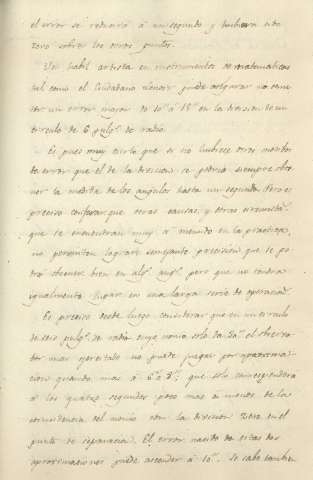 el error se reducirá á un segundo y hubiera sido
zero sobre los otros puntos.
Un habil artista en instrumentos de matematicas
tal como el Ciudadano Lenoir puede asegurar no come
ter un error mayor de 10" á 15" en la division de un
circulo de 6 pulg.s de radio.
Es pues muy cierto que si no hubiese otros motivos
de error que el de la division, se podria siempre obte
ner la medida de los angulos hasta un segundo. Pero es
preciso confesar que otras causas, y otras circunsta
que se encuentran muy á menudo en la practica,
no permiten lograr semejante precision que se po
drá obtener bien en alg.s ang.s pero que no tendrá
igualmente lugar en una larga serie de operacio.s
Es preciso desde luego considerar que en un circulo
de seis pulg.s de radio cuyo nonio solo da 30" el observa
dor mas exercitado no puede juzgar por aproxima
cion quando mas á 6" ó 8"; que solo corresponderá
á los quatro segundos poco mas ó menos de la
coincidencia del nonio con la division zero en el
punto de separacion. El error nacido de estas dos
aproximaciones puede ascender á 10". Se sabe tambien